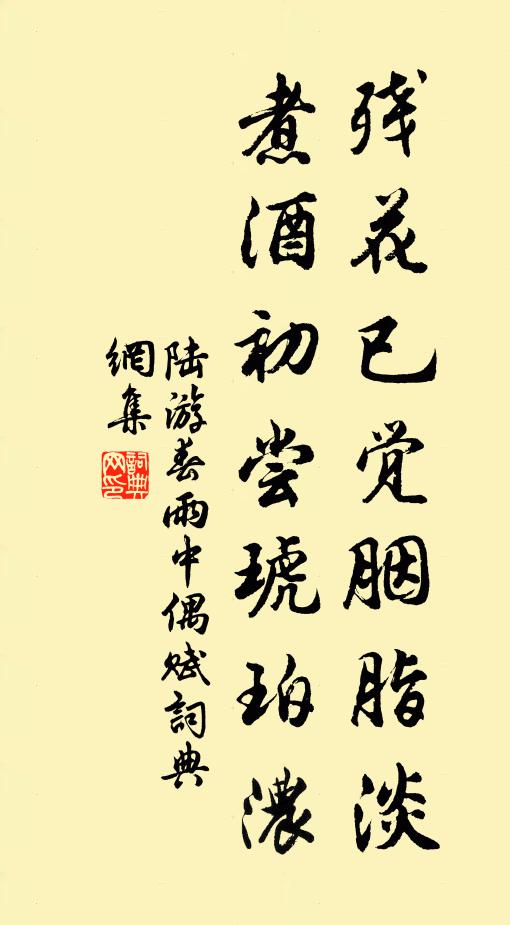 残花已觉胭脂淡
煮酒初尝琥珀濃
陆游春雨中偶赋詞典
網集
詞典
网印